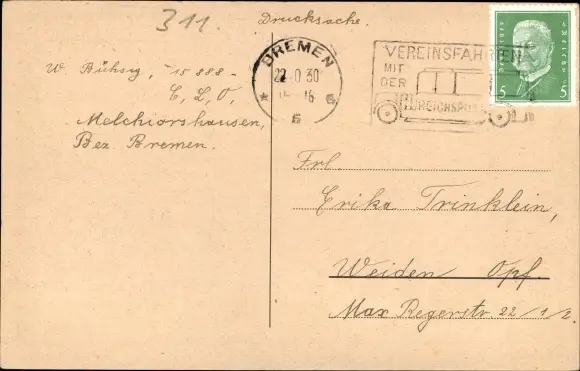 311.
Drucksache.
W. Bühsig, -15888-
C, L, O,
Melchiorshausen,
Bez. Bremen.
BREMEN
30
* 6
VEREINSFAHRTEN
MIT
DER
REICHSPOST
5 5
Frl.
Erika Trinklein,
Weiden Opf.
Max Regerstr. 22/1/2.